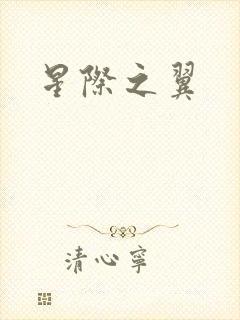 星際之翼
清心寧